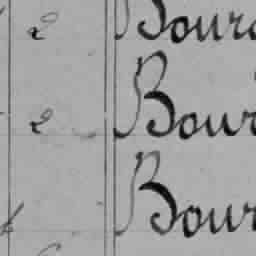 2 Bour
2 Bour
Bour